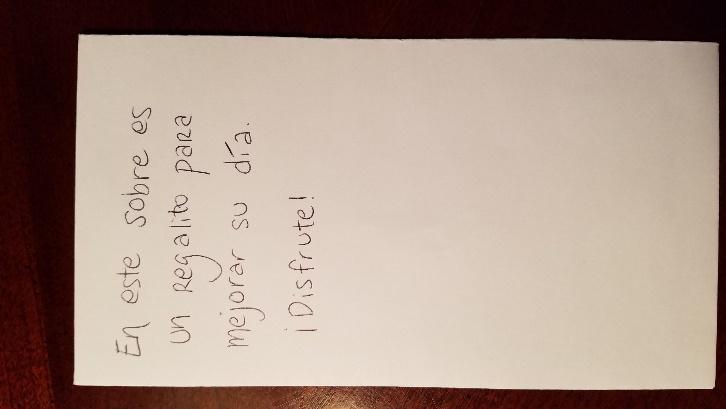 En este sobre es
un regalito para
mejorar su día.
¡Disfrute!